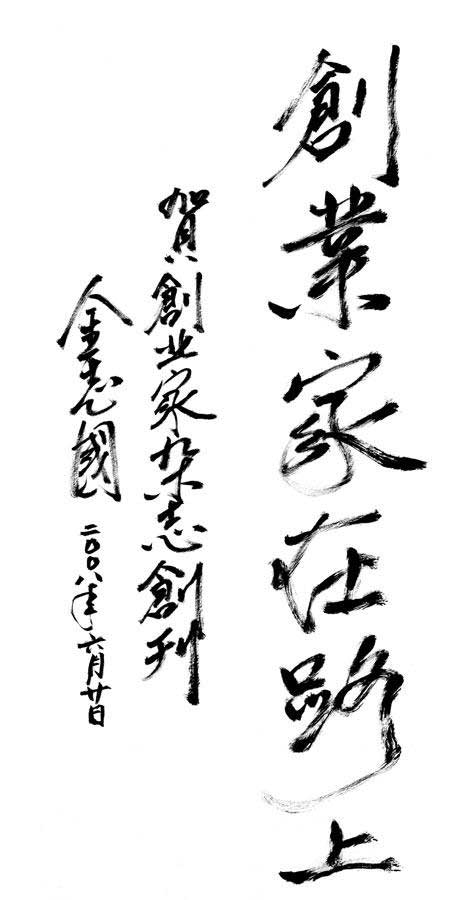 創業家在路上
賀創业家杂志創刊
金志國 二〇〇八年六月廿日